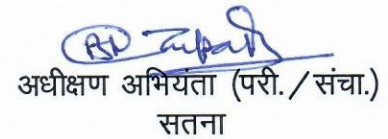 अधीक्षण अभियंता (परी./संचा.)
सतना